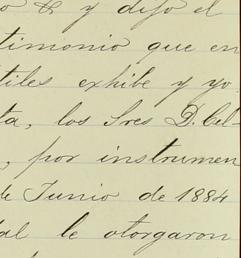 o & y dijo el
timonio que en
tiles exhibe y yo
ta, los Sres D. Cel-
, por instrumen
de Junio de 1884
al le otorgaron